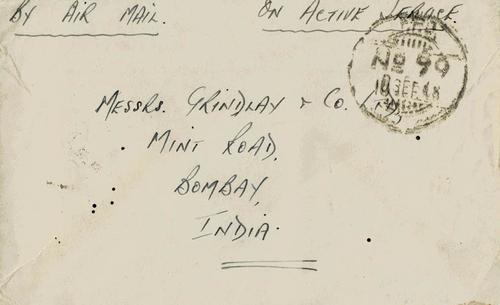 BY AIR MAIL. ON ACTIVE SERVICE.
No 99
MESSRS. GRINDLAY & Co.
MINT ROAD,
BOMBAY,
INDIA.